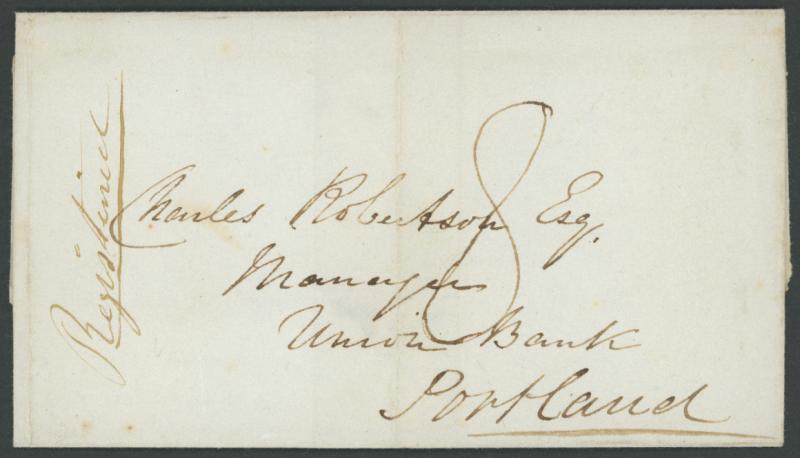 Registered
8
Charles Robertson Esq.
Manager
Union Bank
Portland